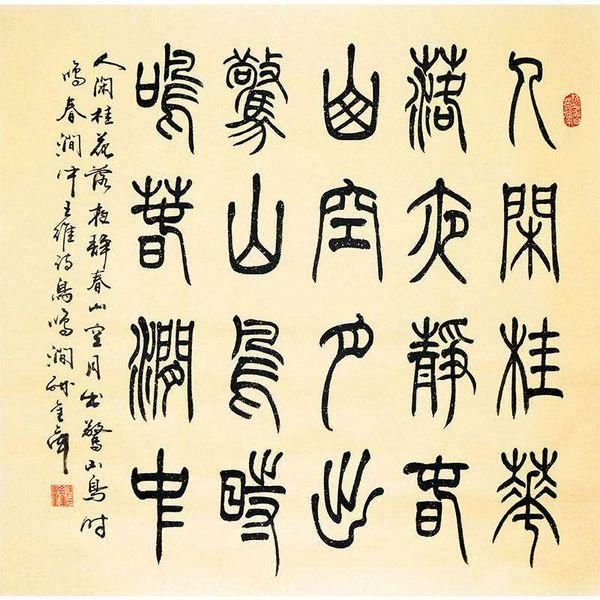 人閑桂華
落夜靜春
山空月出
驚山鳥時
鳴春澗中
人闲桂花落夜静春山空月出驚山鳥时
鳴春澗中王維诗鳥鳴澗